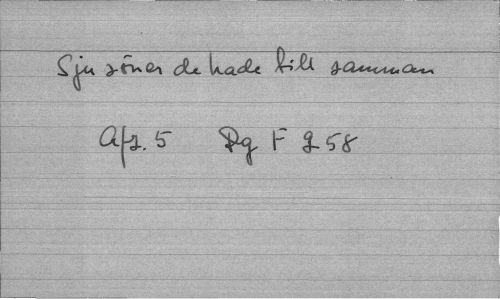 Sju söner de hade till samman
Afz. 5 Dg F 258